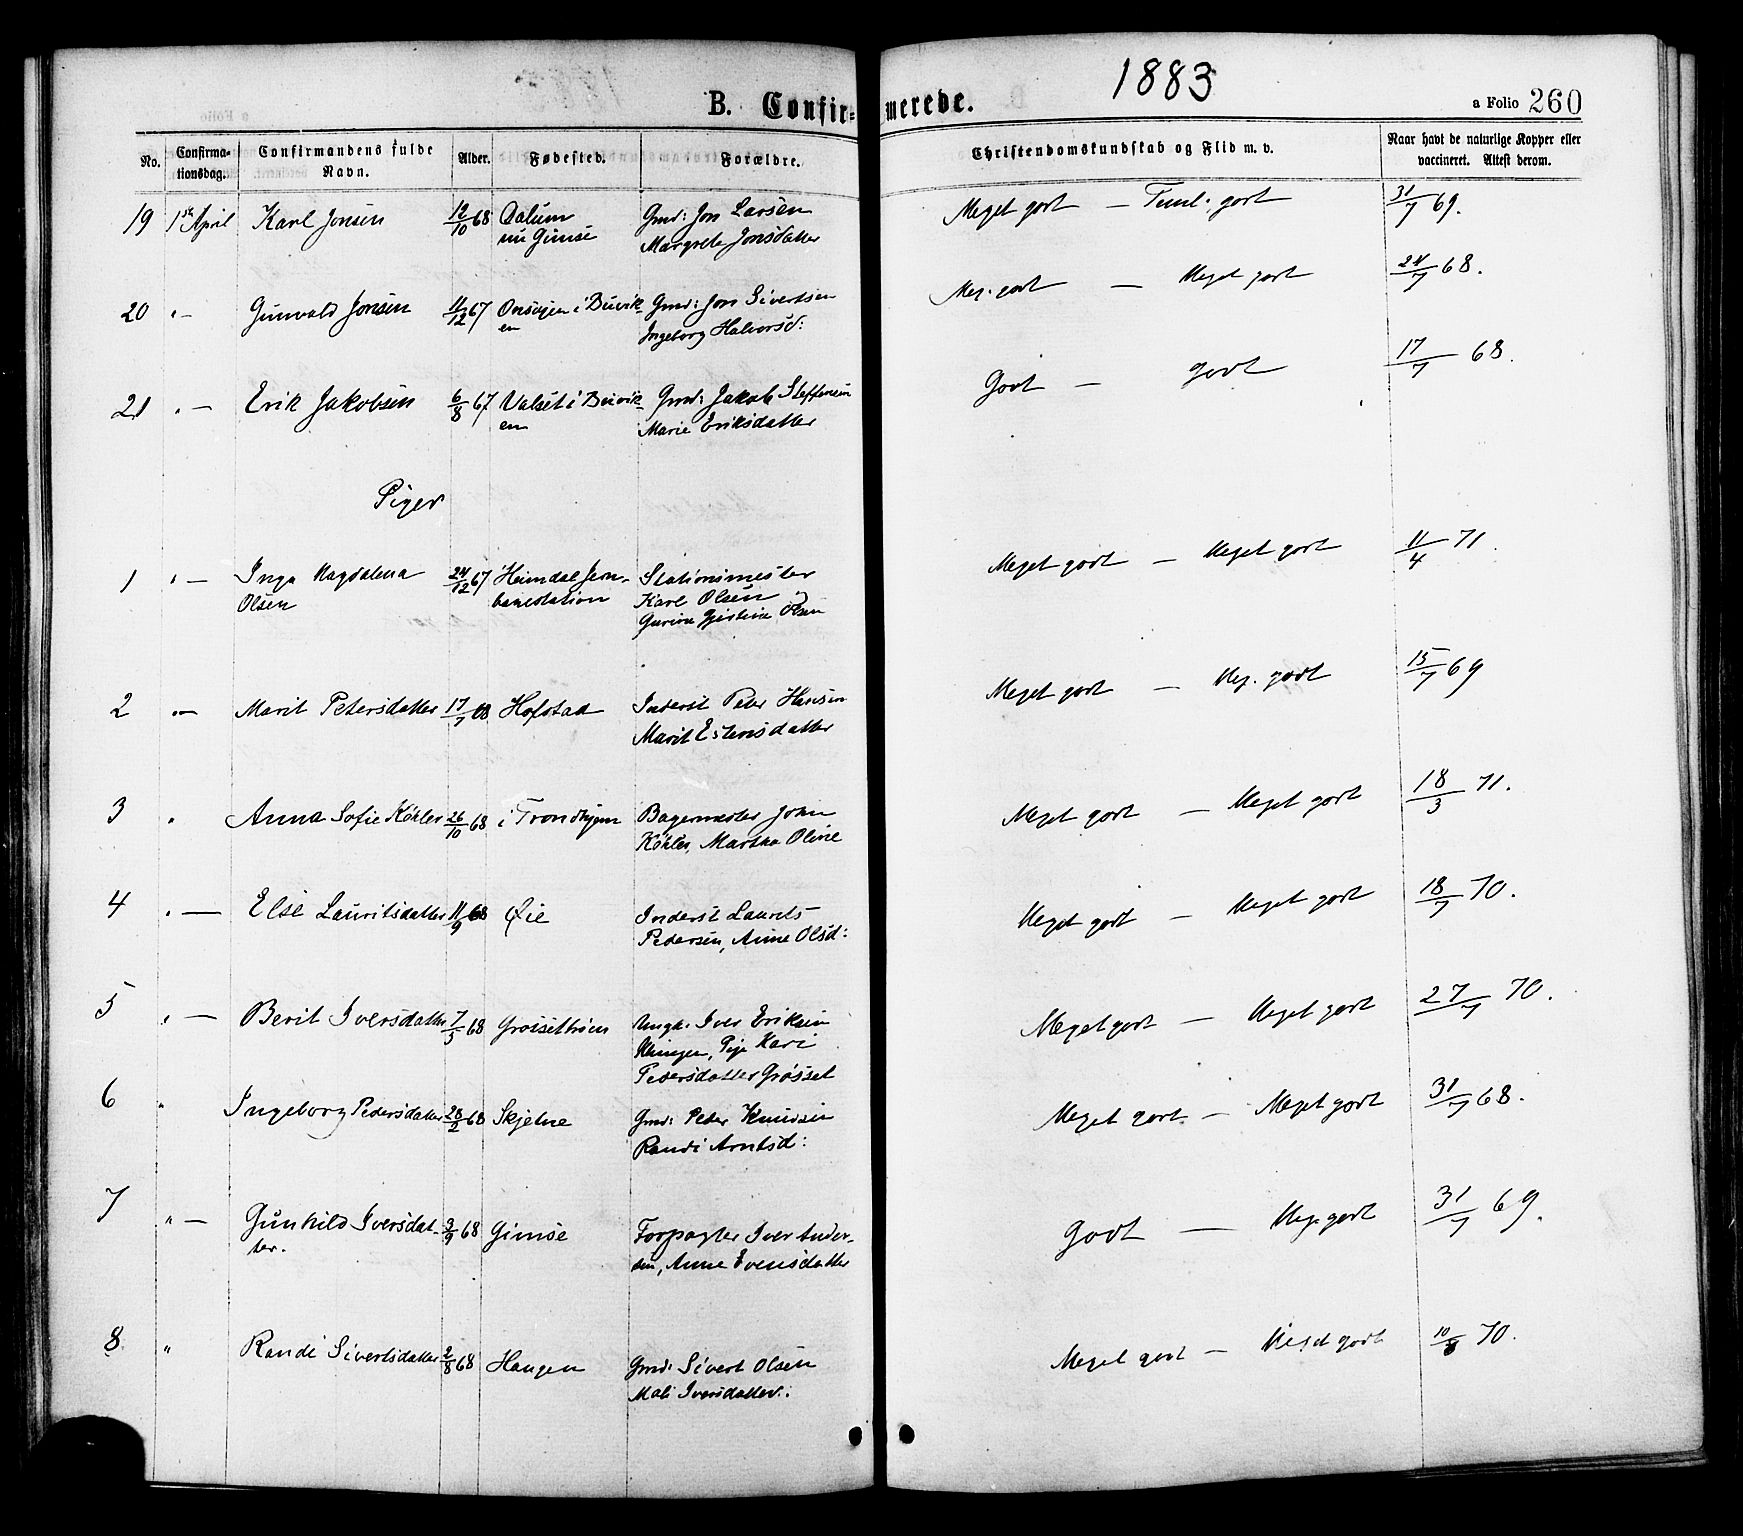 B. Confirmerede.
1883
a Folio 260
No. Confirmationsdag. Confirmandens fulde Navn. Alder. Fødested. Forældre. Christendomskundskab og Flid m. v. Naar havt de naturlige Kopper eller vaccineret. Attest derom.
19 1ste April Karl Jonsen 12/10 68 Dalum Gmd: Jon Larsen Meget godt — Teml. godt 31/7 69.
nu Gimse Margrete Jonsdatter
20 " — Gunvald Jonsen 11/12 67 i Buvik- Gmd: Jon Sivertsen Meg. godt — Meget godt 24/7 68.
en Ingeborg Halvorsd:
21 " — Erik Jakobsen 6/8 67 Valset i Buvik- Gmd: Jakob Steffensen Godt — godt 17/7 68.
en Marie Eriksdatter
Piger
1 " — Inga Magdalena 24/12 67 Heimdal Jern- Stationsmester Meget godt — Meget godt 11/4 71.
Olsen banestation Karl Olsen og
Gurine Olsen
2 " — Marit Petersdatter 17/7 68 Hofstad Inderst Peter Hansen Meget godt — Meg. godt 15/7 69
Marit Estensdatter
3 " Anna Sofie Köhler 26/10 68 i Trondhjem Bagermester John Meget godt — Meget godt 18/3 71.
Köhler, Martha Oline
4 " — Else Lauritsdatter 11/9 68 Øie Inderst Laurits Meget godt — Meget godt 18/7 70.
Pedersen, Anne Olsd:
5 " — Berit Iversdatter 7/5 68 Grøssethrøen Ungk. Iver Eriksen Meget godt — Meget godt 27/7 70.
Klingen, Pige Kari
Petersdatter Grøsset
6 " Ingeborg Pedersdatter 28/2 68 Skjetne Gmd: Peder Knudsen Meget godt — Meget godt 31/7 68.
Randi Arntsd:
7 " — Gunhild Iversdat- 3/9 68 Gimse Forpagter Iver Ander- Godt — Meg. godt 31/7 69.
ter. sen, Anne Evensdatter
8 " Randi Sivertsdatter 2/8 68 Haugen Gmd: Sivert Olsen Meget godt — Meget godt 10/8 70.
Mali Iversdatter.